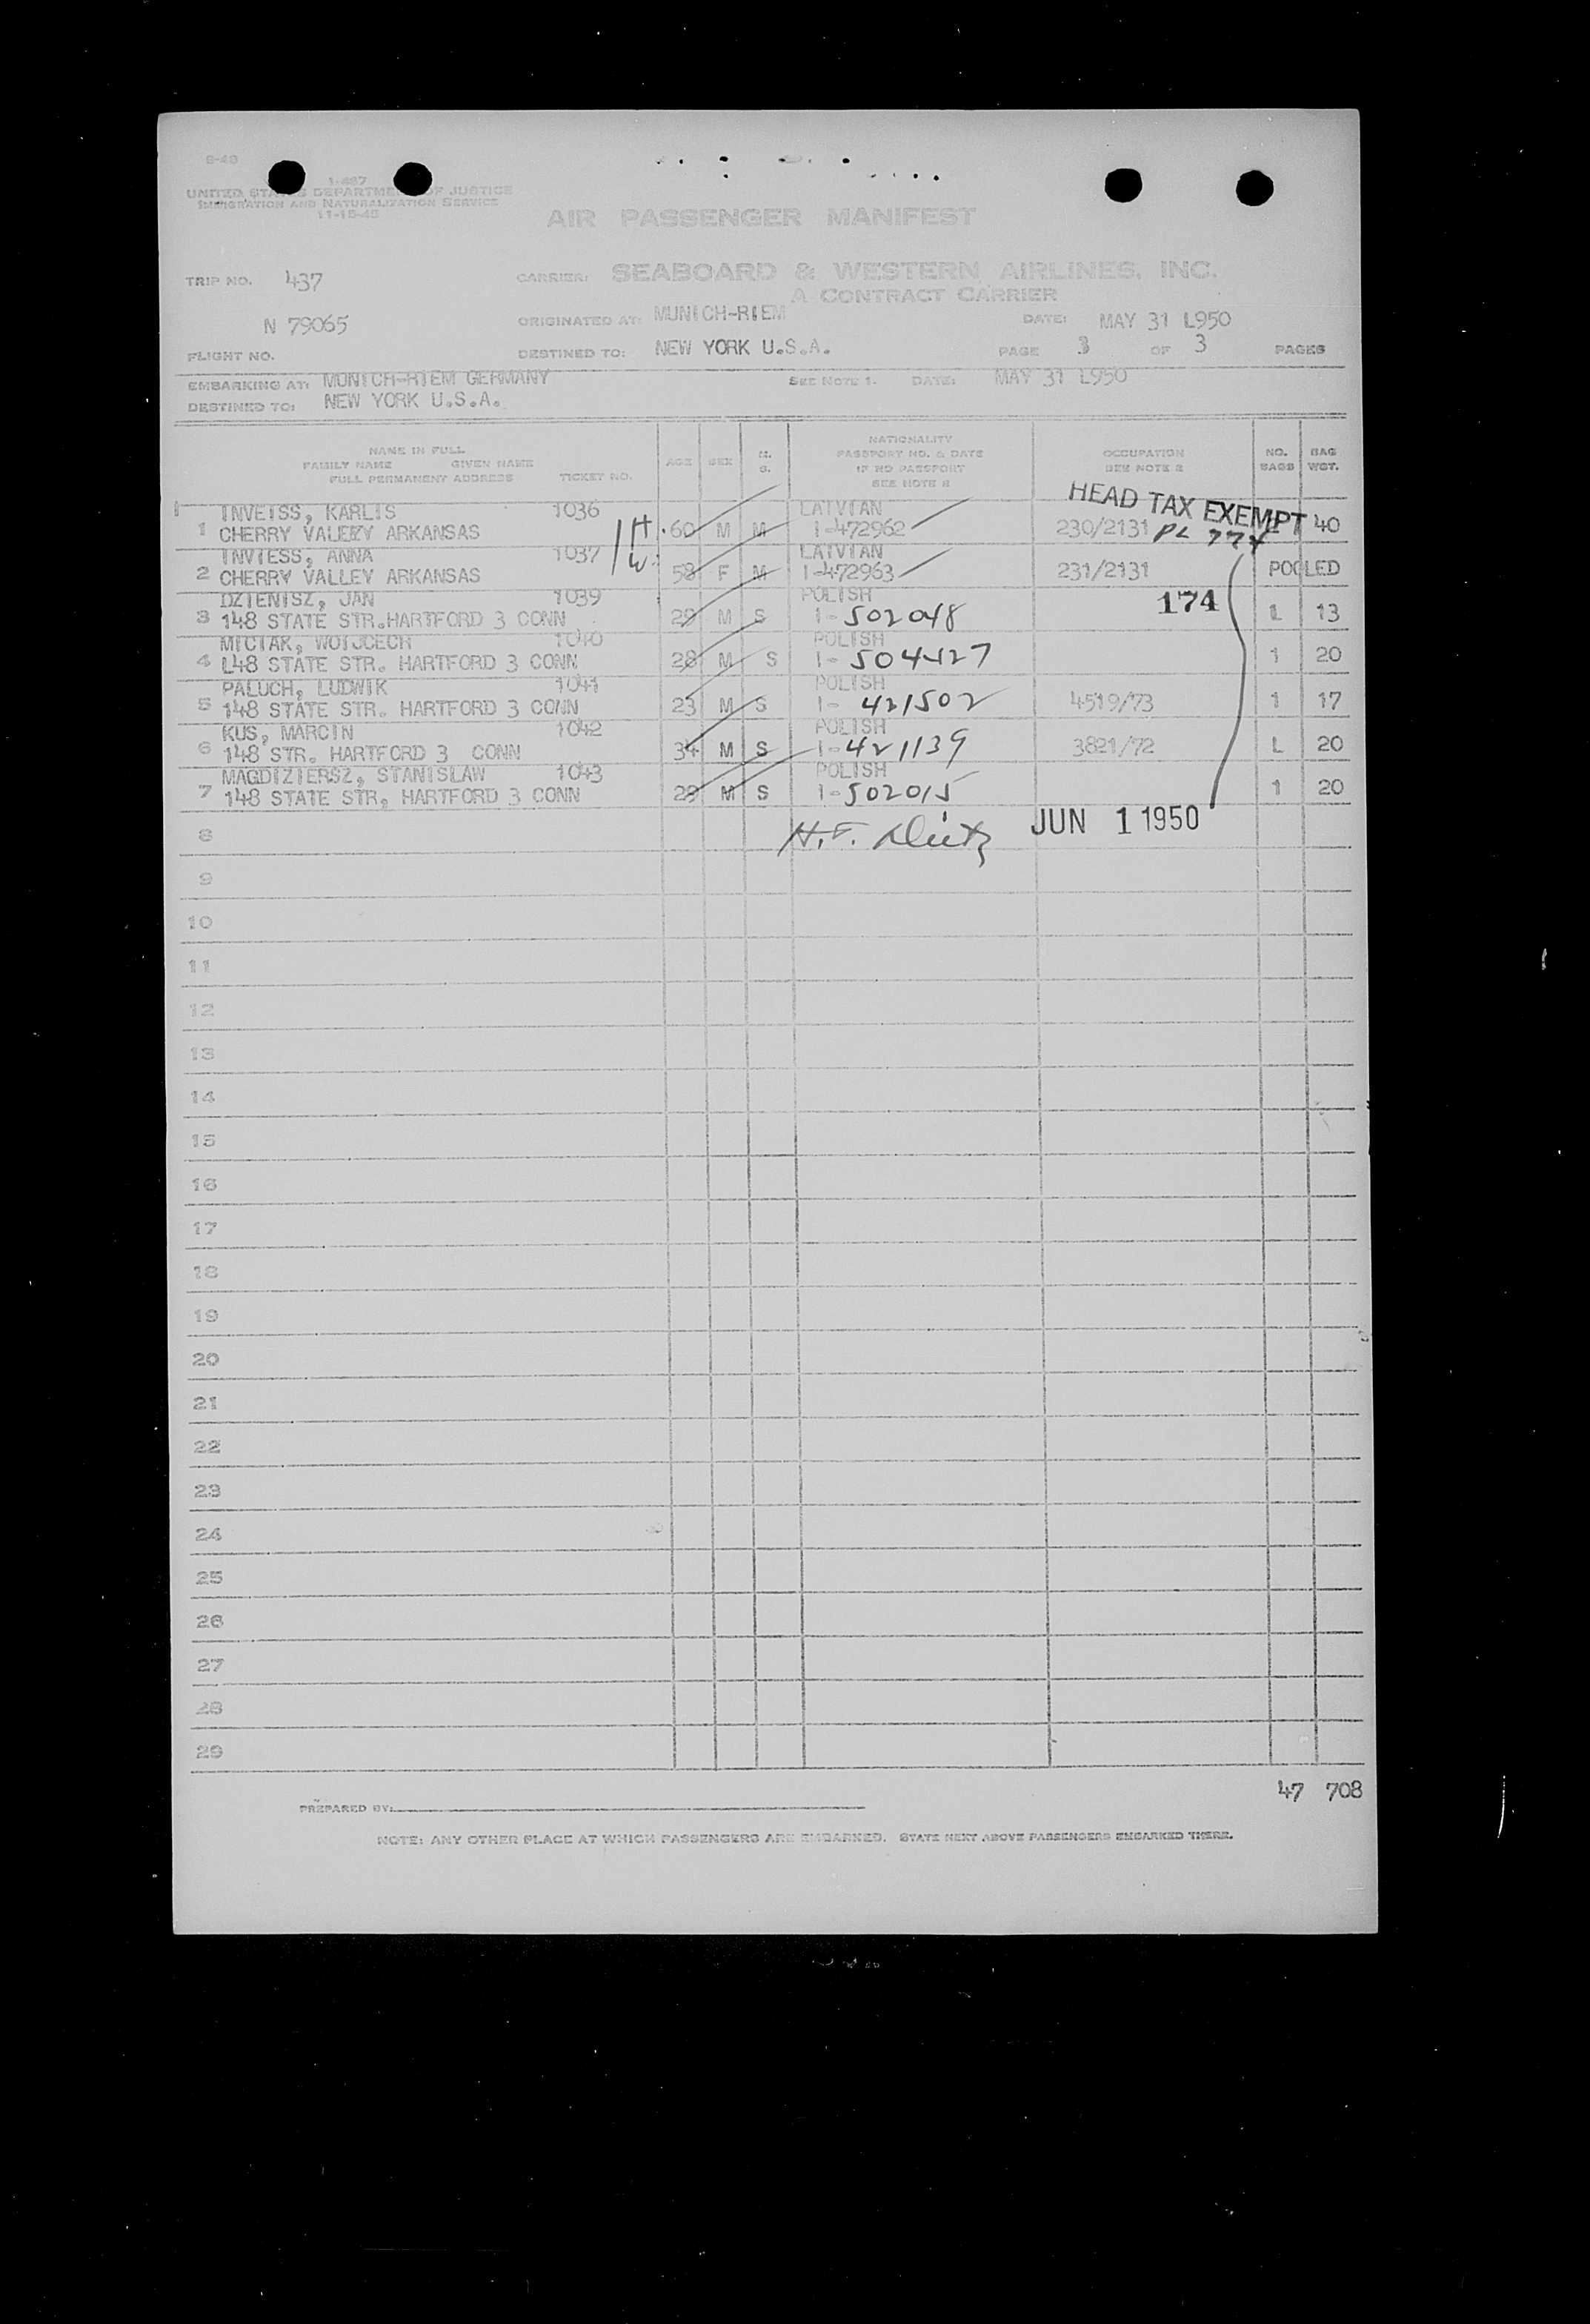 8-49
1-487
UNITED STATES DEPARTMENT OF JUSTICE
IMMIGRATION AND NATURALIZATION SERVICE
11-15-45
AIR PASSENGER MANIFEST
TRIP NO. 437
CARRIER: SEABOARD & WESTERN AIRLINES, INC.
A CONTRACT CARRIER
N 79065
ORIGINATED AT: MUNICH-RIEM
DATE: MAY 31 L950
FLIGHT NO.
DESTINED TO: NEW YORK U.S.A.
PAGE 3 OF 3 PAGES
EMBARKING AT: MUNICH-RIEM GERMANY
SEE NOTE 1. DATE: MAY 31 L950
DESTINED TO: NEW YORK U.S.A.
NAME IN FULL
FAMILY NAME GIVEN NAME
FULL PERMANENT ADDRESS TICKET NO.
AGE SEX M. S.
NATIONALITY
PASSPORT NO. & DATE
IF NO PASSPORT
SEE NOTE 2
OCCUPATION
SEE NOTE 2
NO. BAGS
BAG WGT.
HEAD TAX EXEMPT
PL 774
INVEISS, KARLIS 1036 LATVIAN
1 CHERRY VALEEY ARKANSAS H 60 M M I-472962 230/2131 40
INVIESS, ANNA 1037 LATVIAN
2 CHERRY VALLEY ARKANSAS W 58 F M I-472963 231/2131 POOLED
DZIENISZ, JAN 1039 POLISH 174
3 148 STATE STR.HARTFORD 3 CONN 29 M S I-502048 L 13
MICIAK, WOIJCECH 1040 POLISH
4 L48 STATE STR. HARTFORD 3 CONN 28 M S I-504527 1 20
PALUCH, LUDWIK 1041 POLISH
5 148 STATE STR. HARTFORD 3 CONN 23 M S I-421502 4519/73 1 17
KUS, MARCIN 1042 POLISH
6 148 STR. HARTFORD 3 CONN 34 M S I-421139 3821/72 L 20
MAGDIZIERSZ, STANISLAW 1043 POLISH
7 148 STATE STR, HARTFORD 3 CONN 29 M S I-502015 1 20
8 H.F. JUN 1 1950
9
10
11
12
13
14
15
16
17
18
19
20
21
22
23
24
25
26
27
28
29
47 708
PREPARED BY:
NOTE: ANY OTHER PLACE AT WHICH PASSENGERS ARE EMBARKED, STATE NEXT ABOVE PASSENGERS EMBARKED THERE.